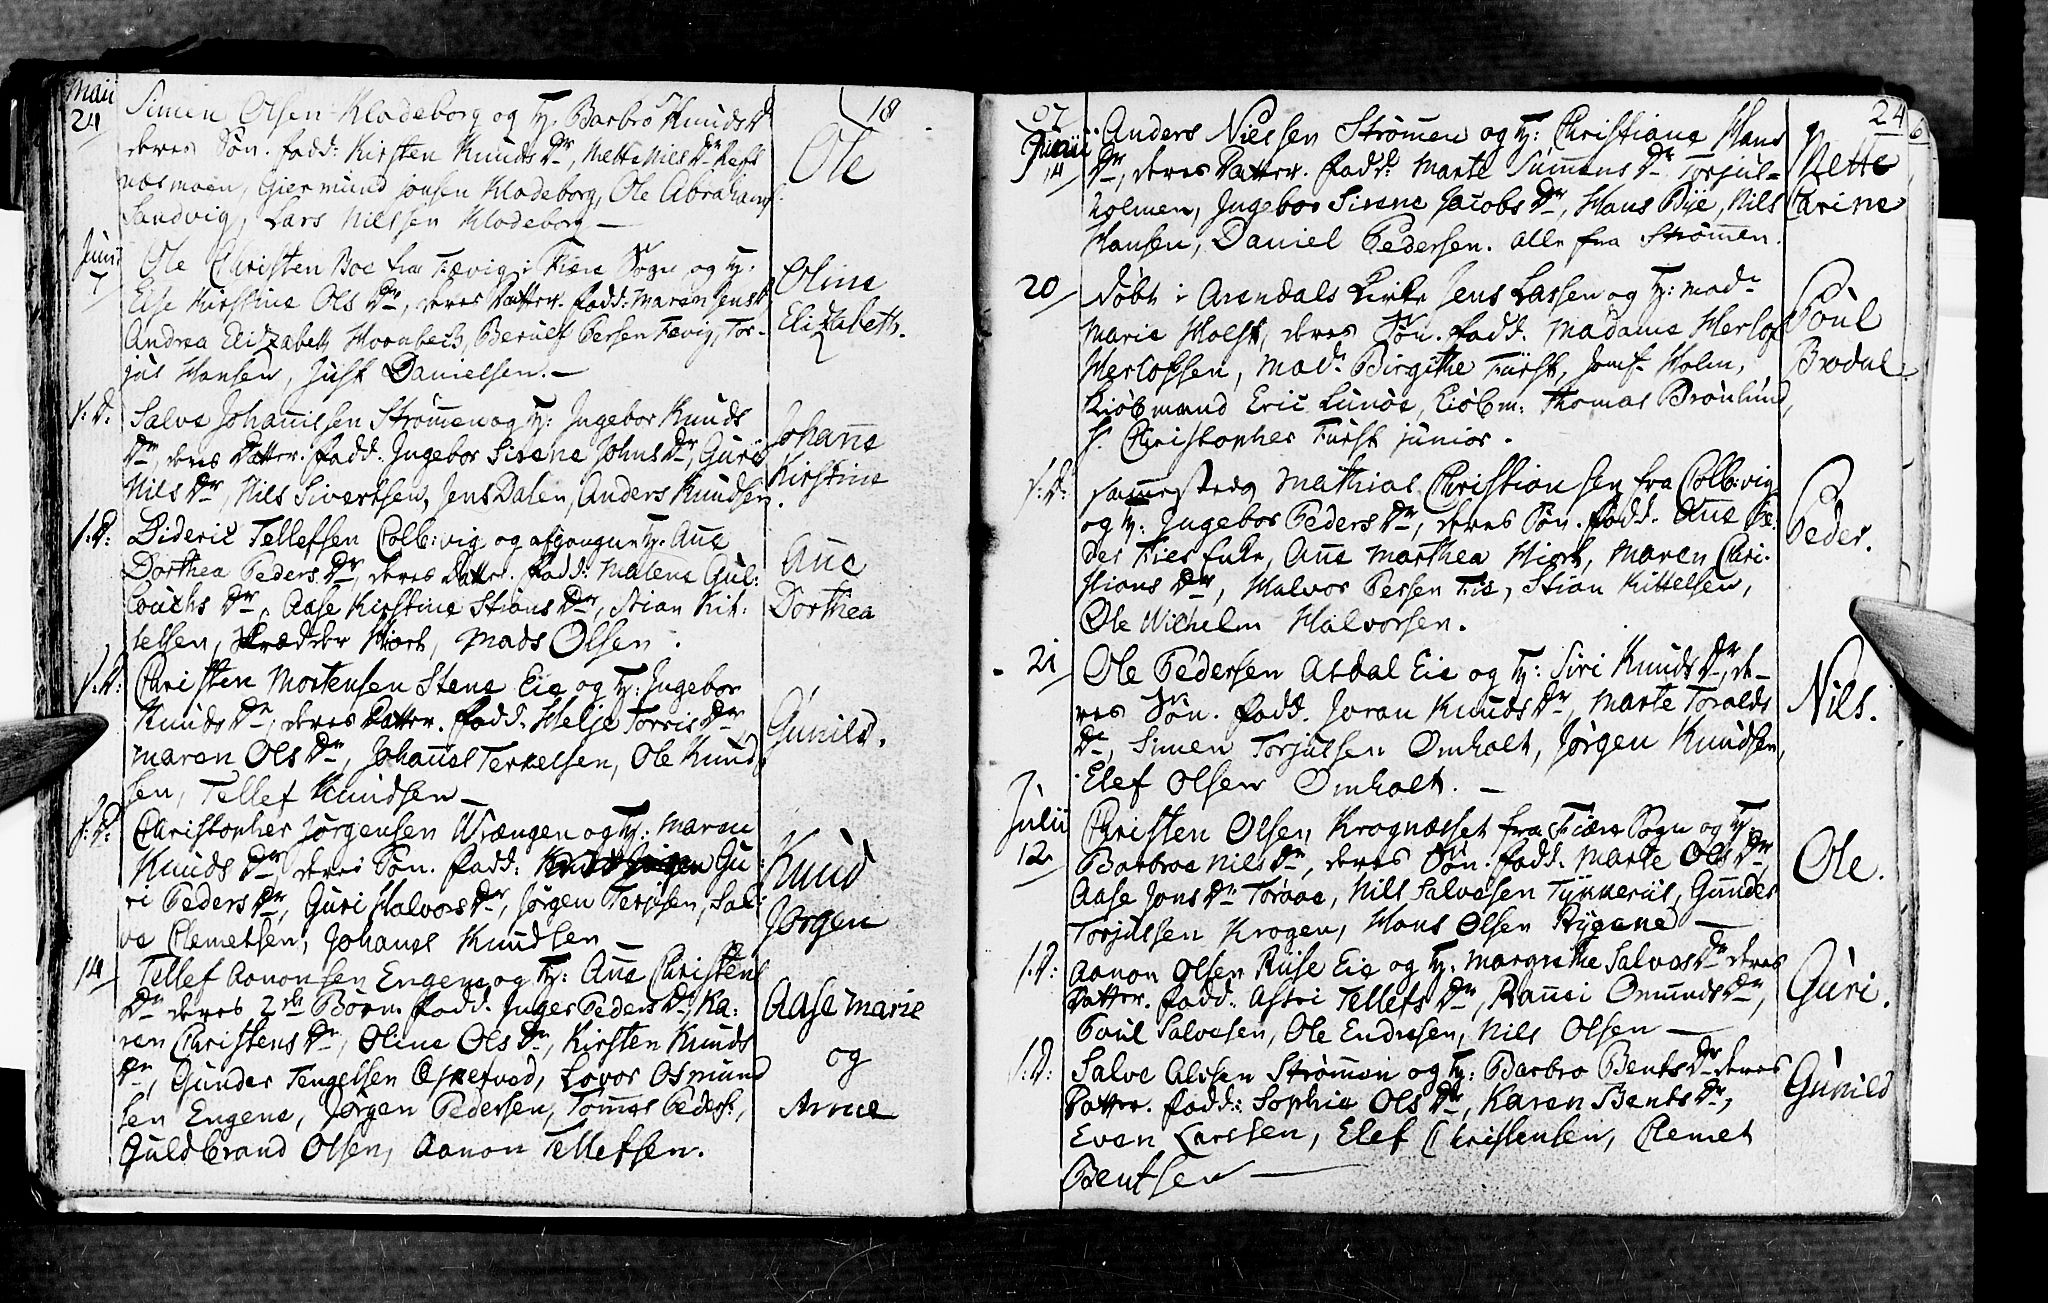 Maii
24
Simen Olsen Klodeborg og Hu: Barbro Knuds Dr
deres Søn. fadd: Kirsten Knuds Dr, Mette Niels Dr
næsmoen, Giermund Jonsen Klodeborg, Ole Abrahams
Sandvig, Lars Nilssen Klodeborg —
18
Ole
Junii
7
Ole Christen Boe fra Fævig i Fiære Sogn og Hu:
Else Kirstine Ols Dr, deres Datter. fadd: Maren Jens Dr
Andrea Elizabeth Hornbech, Beruld Persen Fævig, Tor-
jus Hansen, Just Danielsen. —
Oline
Elizabeth.
s: D:
Salve Johannissen Strømen og Hu: Ingebor Knuds
Dr, deres Datter. fadd: Ingebor Sirene Johns Dr, Guri
Nils Dr, Nils Sivertsen, Jens Dalen, Anders Knudsen.
Johanne
Kirstine
s: D:
Dideric Tellefsen Colb:vig og afgangne Hu: Ane
Dorthea Peders Dr, deres Datter. fadd: Malene Gul-
Dr, Aase Kirstine Stians Dr, Stian Kit-
telsen, Skrædder Hiort, Mads Olsen.
Ane
Dorthea
s: D:
Christen Mortensen Stene Eie og Hu: Ingebor
Knuds Dr, deres Datter. fadd: Helje Torris Dr,
Maren Ols Dr, Johannes Terkelsen, Ole Knud-
sen, Tellef Knudsen —
Gunild.
s: D:
Christopher Jørgensen Wrængen og Hu: Maren
Knuds Dr, deres Søn. fadd: Gu-
ri Peders Dr, Guri Halvors Dr, Jørgen Terjesen, Sal-
ve Clemetsen, Johanes Knudsen —
Knud
Jørgen
14
Tellef Aanonsen Engene og Hu: Ane Christens
Dr deres 2de Børn. fadd. Inger Peders Dr, Ka-
ren Christens Dr, Oline Ols Dr, Kirsten Knuds
Dr, Gunder Tengelsen Espetved, Lovor Osmund
sen Engene, Jørgen Pedersen, Tommas Peders:,
Guldbrand Olsen, Aanon Tellefsen.
Aase Marie
og
Anne
24
6
Junii
14
Anders Nielsen Strømen og Hu: Christiane Hans
Dr, deres Datter. fadd: Marte Simens Dr Torjus-
holmen, Ingebor Sirene Jacobs Dr, Hans Bÿe, Nils
Hansen, Daniel Pedersen. alle fra Strømen.
Mette
Karine
20
døbt i Arendals Kirke Jens Lassen og Hu: Madm
Marie Holst, deres Søn. fadd. Madame Herlof
Herlofsen, Mad: Birgithe Fürst, Jomf. Holm,
Kiøbmand Eric Lunøe, Kiøbm: Thomas Brønlund,
Hr. Christopher Fürst junior.
Poul
Brodal.
s: D:
sammested Mathias Christiansen fra Colb:vig
og Hu: Ingebor Peders Dr, deres Søn. fadd. Ane Pe-
der Fies Enke, Ane Marthea Hiort, Maren Chri-
stians Dr, Halvor Persen Fie, Stian Kittelsen,
Ole Wilhelm Halvorsen.
Peder.
21
Ole Pedersen Asdal Eie og Hu: Siri Knuds Dr, de-
res Søn. fadd. Joran Knuds Dr, Marte Toralds
Dr, Simen Torjussen Omholt, Jørgen Knudsen,
Elef Olsen Omholt. —
Nils.
Julii
12
Christen Olsen Krognæsset fra Fiære Sogn og Hu:
Barbroe Nils Dr, deres Søn. fadd. Marte Ols Dr,
Aase Jons Dr Torvae, Nils Salvesen Tÿkkeriis, Gunder
Torjussen Krogen, Hans Olsen Rÿgene —
Ole.
s: D:
Aanon Olsen Ruse Eie og Hu: Margrethe Salves Dr deres
Datter. fadd: Astri Tellefs Dr, Rannei Omunds Dr,
Poul Salvesen, Ole Endresen, Nils Olsen —
Guri.
s: D:
Salve Alvsen Strømmen og Hu: Barbro Bents Dr deres
Datter. fadd: Sophie Ols Dr, Karen Bents Dr,
Even Larssen, Elef Christensen, Clemet
Bentsen —
Gunild